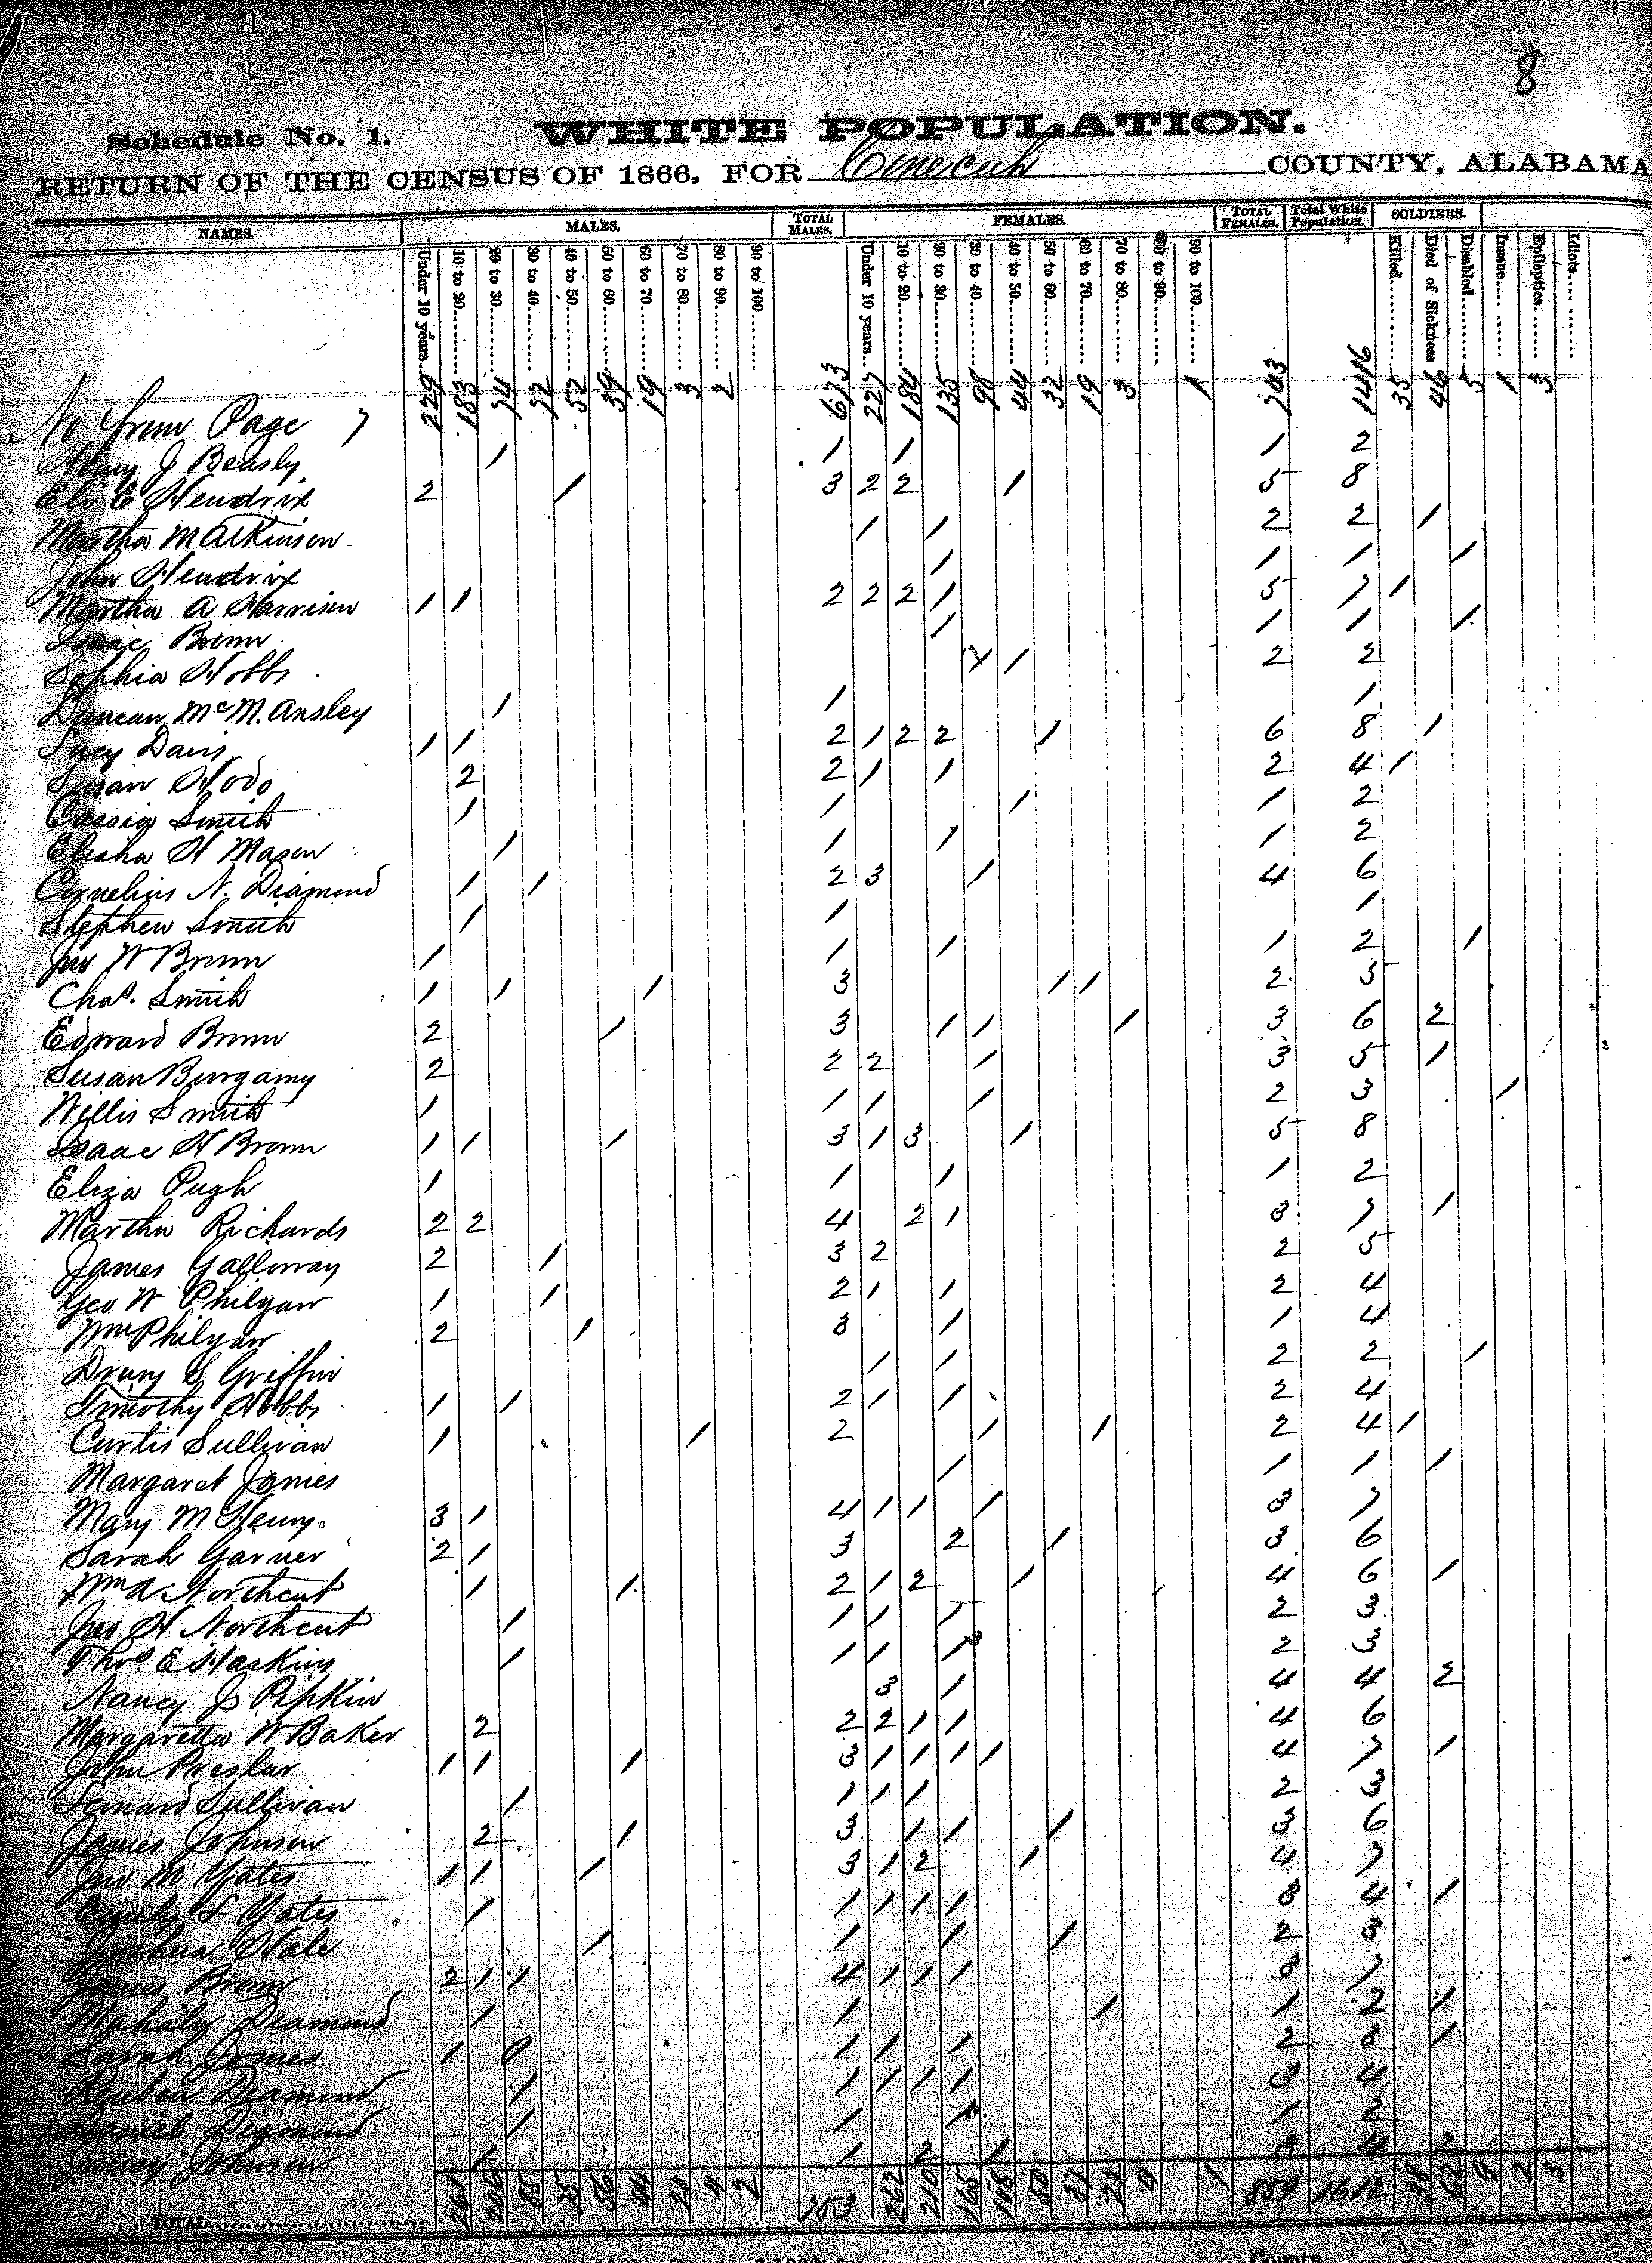 8
Schedule No. 1. WHITE POPULATION.
RETURN OF THE CENSUS OF 1866, FOR Conecuh COUNTY, ALABAMA
NAMES. MALES. TOTAL MALES. FEMALES. TOTAL FEMALES. Total White Population. SOLDIERS.
Under 10 years 10 to 20 20 to 30 30 to 40 40 to 50 50 to 60 60 to 70 70 to 80 80 to 90 90 to 100 Under 10 years 10 to 20 20 to 30 30 to 40 40 to 50 50 to 60 60 to 70 70 to 80 80 to 90 90 to 100 Killed Died of Sickness Disabled Insane Epileptics Idiots
No from Page 7 229 183 74 72 52 39 19 3 2 673 227 184 135 98 44 32 19 3 1 743 1416 35 46 5 1 3
Henry J Beasly 1 1 1 1 2
Eli E Hendrix 2 1 3 2 2 1 5 8
Martha M Atkinson 1 1 2 2 1
John Hendrix 1 1 1 1
Martha A Harrison 1 1 2 2 2 1 5 7 1
Isaac Brown 1 1 1 1
Sophia Hobbs 1 1 2 2
Duncan McM. Ansley 1 1 1
Lucy Davis 1 1 2 1 2 2 1 6 8 1
Susan Hodo 2 2 1 1 2 4 1
Cassia Smith 1 1 1 1 2
Elisha H Mason 1 1 1 1 2
Cornelius N. Diamond 1 1 2 3 1 4 6
Stephen Smith 1 1 1
Jno W Brown 1 1 1 1 2 1
Chas. Smith 1 1 1 3 1 1 2 5
Edward Brown 2 1 3 1 1 1 3 6 2
Susan Burgamy 2 2 2 1 3 5 1
Willis Smith 1 1 1 1 2 3 1
Isaac H Brown 1 1 1 3 1 3 1 5 8
Eliza Pugh 1 1 1 1 2
Martha Richards 2 2 4 2 1 3 7 1
James Galloway 2 1 3 2 2 5
Geo W Philyaw 1 1 2 1 1 2 4
Wm Philyaw 2 1 3 1 1 4
Drury S Griffin 1 1 2 2 1
Timothy Hobbs 1 1 2 1 1 2 4
Curtis Sullivan 1 1 2 1 1 2 4 1
Margaret Jones 1 1 1 1
Mary McHenry 3 1 4 1 1 1 3 7
Sarah Garner 2 1 3 2 1 3 6
Wm A Northcut 1 1 2 1 2 1 4 6 1
Jas H Northcut 1 1 1 1 2 3
Thos E Haskins 1 1 1 1 2 3
Nancy J Pipkin 3 1 4 4 2
Margaretta W Baker 2 2 2 1 1 4 6
John Preslar 1 1 1 3 1 1 1 1 4 7 1
Lenard Sullivan 1 1 1 1 2 3
James Johnson 2 1 3 1 1 1 3 6
Jno M Yates 1 1 1 3 1 2 1 4 7
Emily L Yates 1 1 1 1 1 3 4 1
Joshua Hale 1 1 1 1 2 3
James Brown 2 1 1 4 1 1 1 3 7
Mahaley Diamond 1 1 1 1 2 1
Sarah Jones 1 1 1 1 2 3 1
Reuben Diamond 1 1 1 1 1 3 4
Daniel Diamond 1 1 1 1 2
Johnson 1 1 2 1 3 4 2
TOTAL 261 206 85 56 4 2 753 262 210 165 50 27 1 859 1612 62 9 2 3
County